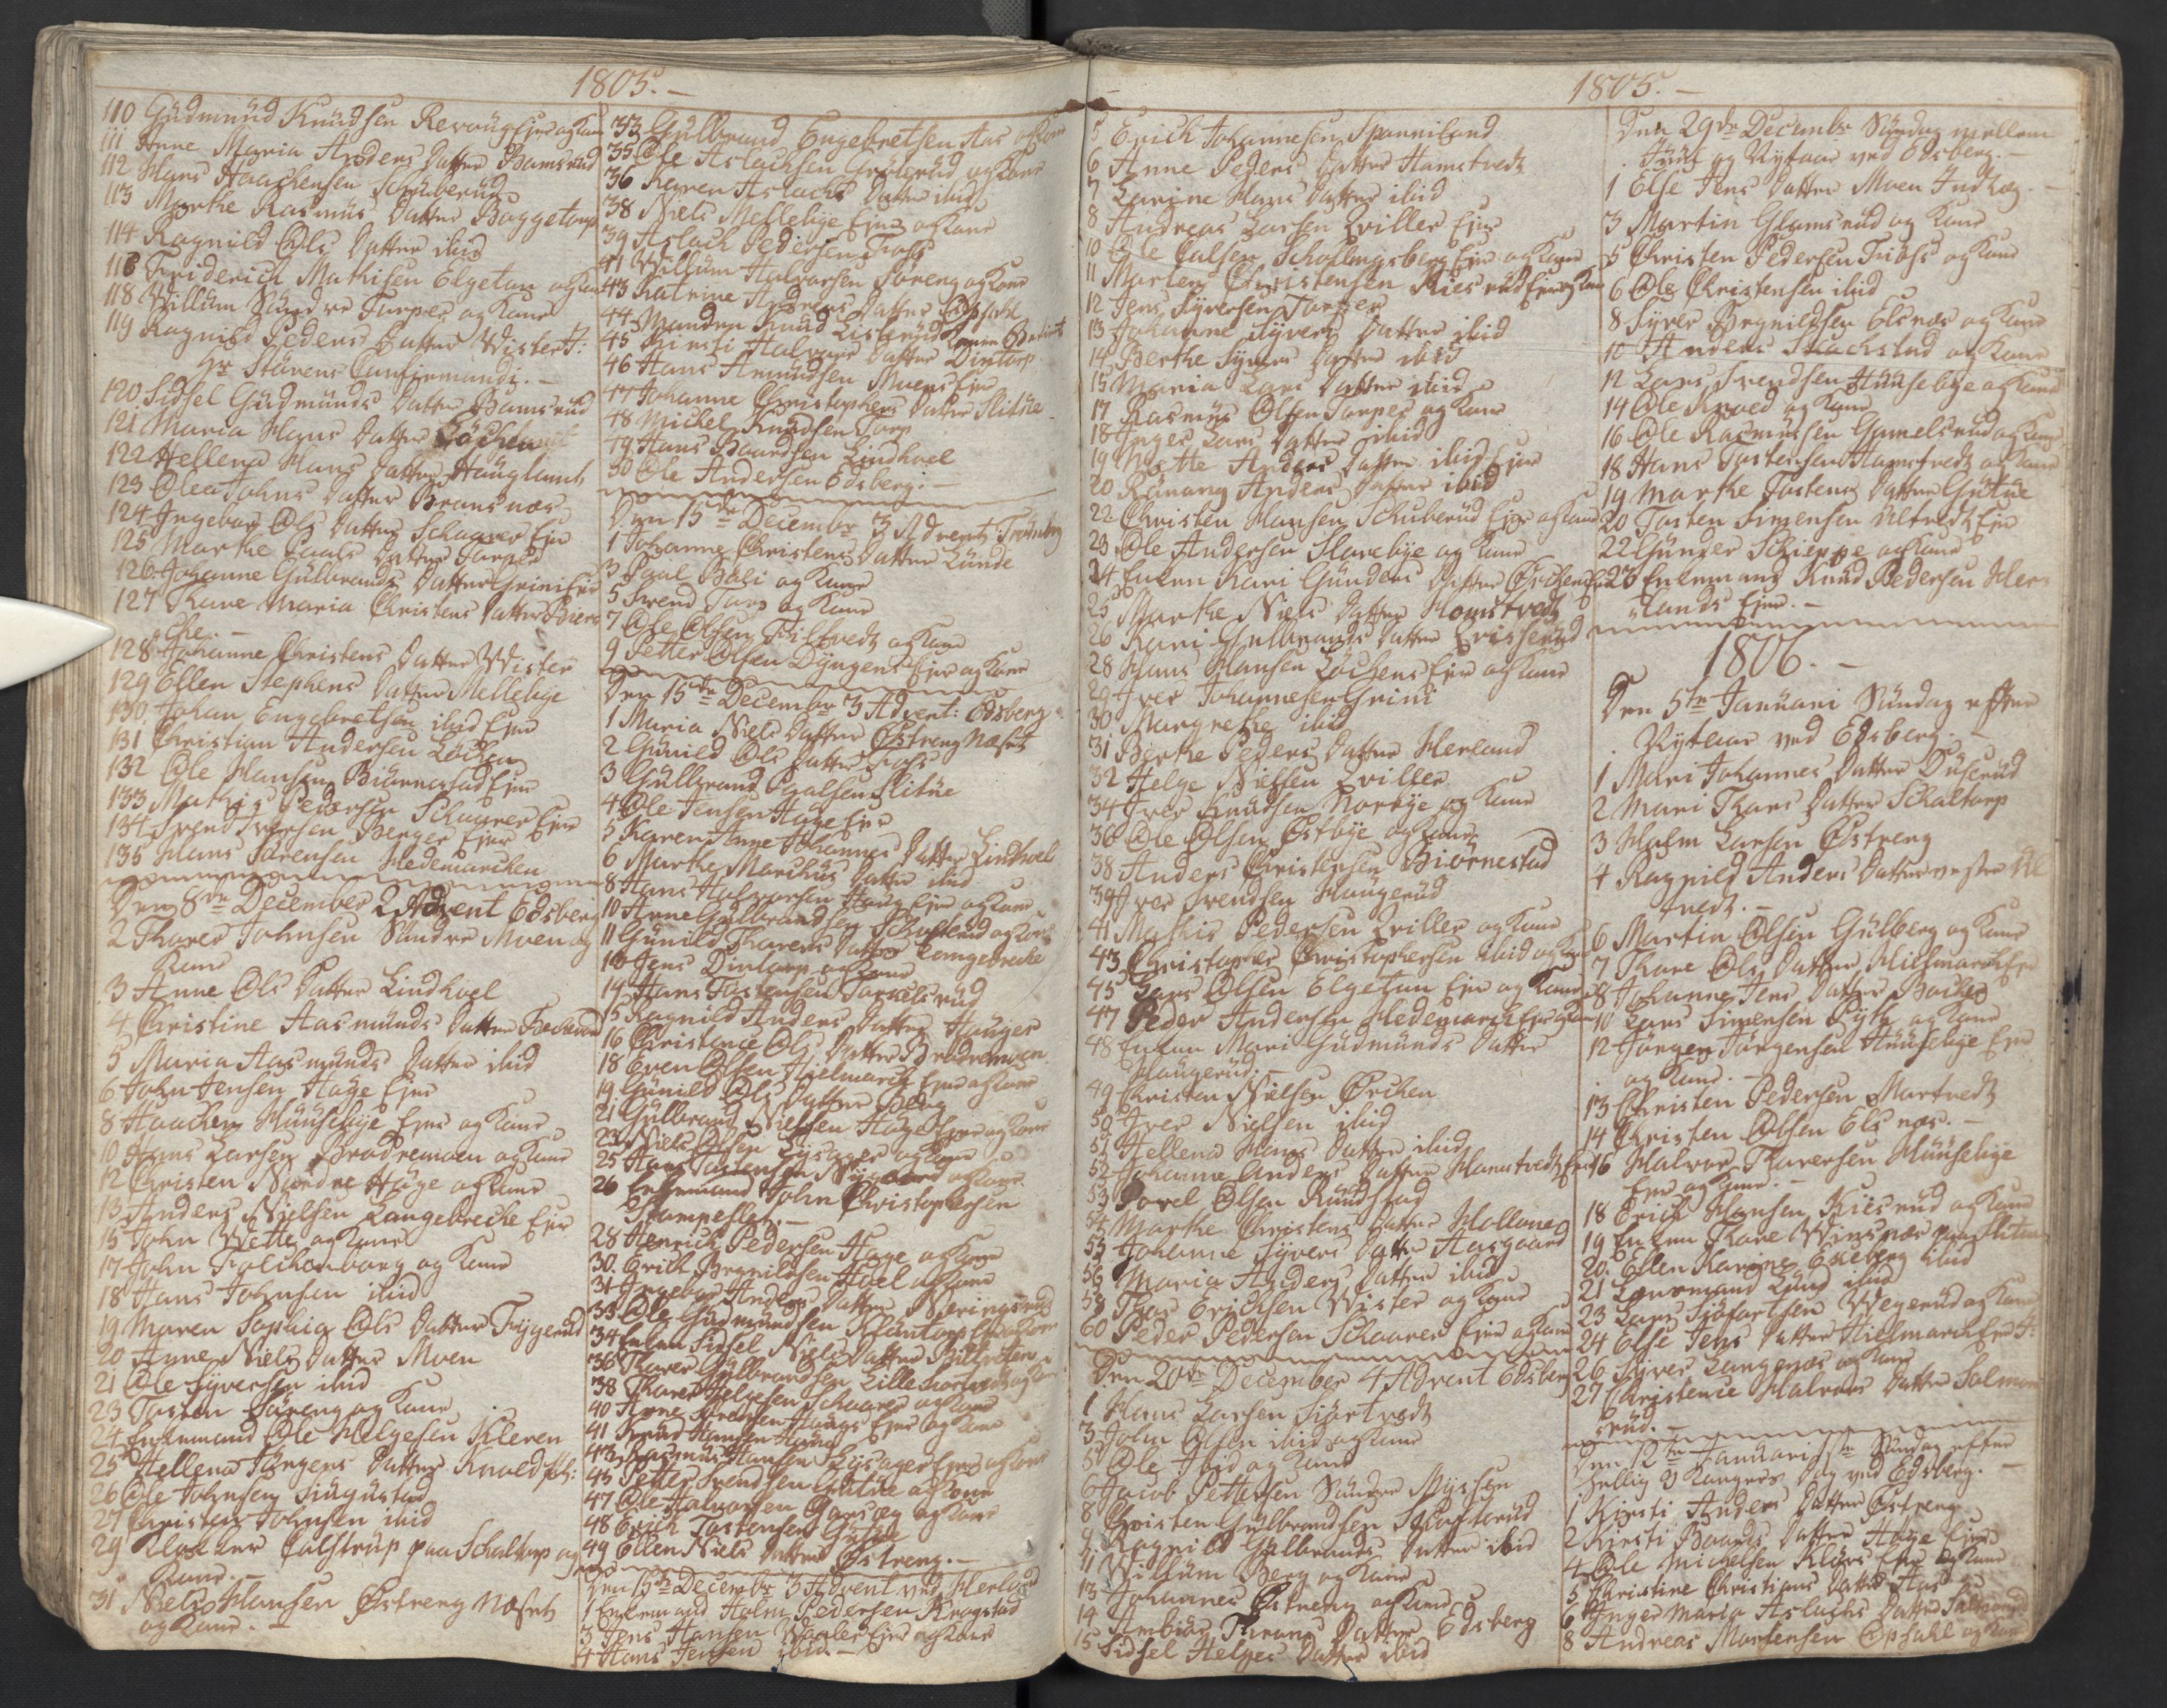 1805.
110 Gudmund Knudsen Revoug Ejer og Kone
111 Anne Maria Anders Datter Bamsrud
112 Hans Haachensen Schuberud
113 Marthe Rasmus Datter Baggetorp
114 Ragnild Ols Datter ibid
116 Friderich Mathisen Elgetun og Kone
118 Willum Sundre Turper og Kone
119 Ragnild Peders Datter Wister f:
Hr Stavens Confirmandi.
120 Sidsel Gudmunds Datter Bamsrud
121 Maria Hans Datter
122 Hellena Hans Datter Hauglund
123 Olea Johns Datter Bransnæs
124 Ingebor Ols Datter Schaarer Eje
125 Marthe Paals Datter Turper
126 Johanne Gulbrands Datter Grini Eje
127 Thore Maria Christens Datter Biere
Eje. –
128 Johanne Christens Datter Wister
129 Ellen Stephens Datter Mellebye
130 Johan Engebretsen ibid Eje
131 Christian Andersen Løchen
132 Ole Hansen Biørnestad Eje
133 Mathis Pedersen Schaarer Eje
134 Svend Iversen Berger Ejer
135 Hans Sørensen Hedemarchen
Den 8de December 2 Advent Edsberg
2 Thorer Johnsen Sundre Moen og
Kone
3 Anne Ols Datter Lindhoel
4 Christine Aasmunds Datter
5 Maria Aasmunds Datter ibid
6 John Jensen Hage Ejer
8 Haachen Huusebye Ejer og Kone
10 Hans Larsen Brødremoen og Kone
12 Christen Nordre Høye og Kone
13 Anders Nielsen Langebreche Eje
15 John Wette og Kone
17 John Falchenborg og Kone
18 Hans Johnsen ibid
19 Maren Sophia Ols Datter Frygerud
20 Anne Niels Datter Moen
21 Ole Syversen ibid
23 Tosten Søreng og Kone
24 Enkemand Ole Helgesen Kleven
25 Hellena Jørgens Datter Knold f:
26 Ole Johnsen Siugustad
27 Christen Johnsen ibid
29 Klokker Calstrup paa Schaltorp og
Kone. –
31 Niels Hansen Østreng Næset
og Kone. –
33 Gulbrand Engebretsen Aas og Kone
35 Ole Aslachsen Grølerud og Kone
36 Karen Aslachs Datter ibid
38 Niels Mellebye Ejer og Kone
39 Aslach Pedersen Foss
41 Willum Halvorsen Søreng og Kone
43 Katrine Anders Datter Opsahl
44 Manden Knud Listerud
45 Kirsti Halvors Datter Dintorp
46 Hans Amundsen Moens Eje
47 Johanne Christophers Datter Slitue
48 Michel Knudsen Torp
49 Hans Baardsen Lindhoel
50 Ole Andersen Edsberg: –
Den 15de Decembr 3 Advent Trømborg
1 Johanne Christens Datter Lunde
3 Poul Bøli og Kone
5 Svend Torp og Kone
7 Ole Olsen Tiltvedt og Kone
9 Petter Olsen Dyngens Ejer og Kone
Den 15de Decembr 3 Advent: Edsberg
1 Maria Niels Datter Østreng Næset
2 Gunild Ols Datter Foss
3 Gulbrand Paalsen Slitue
4 Ole Jensen Hage Eje
5 Karen Anne Johannes Datter Lindhoel
6 Marthe Marchus Datter ibid
8 Hans Halvorsen Haug Eje og Kone
10 Arne Gulbrandsen Schofterud og Kone
11 Gunild Thorers Datter Langebreche
13 Jens Dintorp og Kone
14 Hans Tostensen Torkelsrud
15 Ragnild Anders Datter Hauger
16 Christence Ols Datter Brødremoen
18 Even Olsen Hielmarck Ejer og Kone
19 Gunild Ols Datter Berg
21 Gulbrand Nielsen Hage Ejer og Kone
23 Niels Olsen Lysager og Kone
25 Hans Tostensen Nygaard og Kone
26 Enkemand John Christophersen
Stampeflet. –
28 Henrich Pedersen Hage og Kone
30 Erich Brynildsen Hoel og Kone
31 Ingebor Anders Datter Næringsrud
33 Ole Gudmundsen Kluntorp Eje og Kone
34 Enken Sidsel Niels Datter Biltveten
36 Thorer Gulbrandsen Lille Mortvedt og Kone
38 Thorer Helgesen Schaarer og Kone
40 Arne Sørensen Haugs Ejer og Kone
41 Knud Hansen Haug
43 Rasmus Hansen Lysager Ejer og Kone
45 Petter Svendsen Glitue og Kone
47 Ole Halvorsen Garseg og Kone
48 Erich Tostensen Gutue
49 Ellen Niels Datter Østreng. –
Den 15de Decembr 3 Advent ved Herland
1 Enkemand Holm Pedersen Kragstad
3 Jens Hansen Waaler Ejer og Kone
4 Hans Jensen ibid. –
1805. –
5 Erich Johannesen Spanneland
6 Anne Peders Datter Hamstvedt
7 Karine Hans Datter ibid
8 Andreas Larsen Qviller Ejer
10 Ole Calsen Schollengsberg Ejer og Kone
11 Marten Christensen Kiesrud Ejer og Kone
12 Jens Syversen Torper
13 Johanne Syvers Datter ibid
14 Berthe Syvers Datter ibid
15 Maria Lars Datter ibid
17 Rasmus Olsen Torper og Kone
18 Inger Lars Datter ibid
19 Mette Anders Datter ibid Ejer
20 Rønnaug Anders Datter ibid
22 Christen Hansen Schuberud Ejer og Kone
23 Ole Andersen Slorebye og Kone
24 Enken Kari Gunders Datter Ørchen Eje
25 Marthe Niels Datter Homstvedt
26 Kari Gulbrands Datter Evisserud
28 Hans Hansen Løchens Ejer og Kone
29 Iver Johannesen Grini
30 Margrethe ibid
31 Berthe Peders Datter Herland
32 Helge Nielsen Qviller
34 Iver Knudsen Norbye og Kone
36 Ole Olsen Østbye og Kone
38 Anders Christensen Biørnestad
39 Iver Svendsen Haugerud
41 Mathis Pedersen Qviller og Kone
43 Christopher Christophersen ibid og Kone
45 Hans Olsen Elgetun Eje og Kone
47 Peder Andersen Hedemarch Ejer og Kone
48 Enken Mari Gudmunds Datter
Haugerud. –
49 Christen Nielsen Ørchen
50 Iver Nielsen ibid
51 Hellena Hans Datter ibid
52 Johanne Anders Datter Hamstvedt Eje
53 Povel Olsen Rundstad
54 Marthe Christens Datter
55 Johanne Syvers Datter Aasgaard
56 Maria Anders Datter ibid
58 Thor Erichsen Wister og Kone
60 Peder Pedersen Schaarer Ejer og Kone
Den 20de December 4 Advent Edsberg
1 Hans Larsen Siørtvedt
3 John Olsen ibid og Kone
5 Ole ibid og Kone
6 Jacob Pettersen Sundre Mysen
8 Christen Gulbrandsen Schofterud
9 Ragnild Gulbrands Datter ibid
11 Willum Berg og Kone
13 Johannes Østreng og Kone
14 Ambiør Thrans Datter Edsberg
15 Sidsel Helges Datter ibid
Den 29de Decembr Søndag mellem
Juul og Nytaar ved Edsberg. –
1 Else Jens Datter Moen Indlæg. –
3 Martin Glamsrud og Kone
5 Christen Pedersen Friøss og Kone
6 Ole Christensen ibid
8 Syver Brynildsen Elsnæs og Kone
10 Anders Stuchstad og Kone
12 Lars Svendsen Huusebye og Kone
14 Ole Knold og Kone
16 Ole Rasmussen Gamelsrud og Kone
18 Hans Tostensen Hamstvedt og Kone
19 Marthe Tostens Datter Gutue
20 Tosten Simensen Ultvedt Eje
22 Gunder Schieppe og Kone
23 Enkemand Knud Pedersen Her-
lands Ejer. –
1806. –
Den 5te Januari Søndag efter
Nytaar ved Edsberg. –
1 Mari Johannes Datter Duserud
2 Mari Thors Datter Schaltorp
3 Holm Larsen Østreng
4 Ragnild Anders Datter vestre Ul-
tvedt. –
6 Martin Olsen Gulberg og Kone
7 Thore Ols Datter Hielmarck Eje
8 Johanne Jens Datter Bøcher
10 Lars Simensen Ryth og Kone
12 Jørgen Jørgensen Huusebye Eje
og Kone. –
13 Christen Pedersen Mortvedt
14 Christen Olsen Elsnæs. –
16 Halvor Thoersen Huusebye
Eje og Kone. –
18 Erich Hansen Kiesrud og Kone
19 Enken Thore Winsnæs paa Slitue
20 Ellen Karine Exeberg ibid
21 Lensmand Lund ibid
23 Lars Siøfartsen Wegerud og Kone
24 Else Jens Datter Hielmarck Eje f:
26 Syver Langenæs og Kone
27 Christence Halvors Datter Salmon-
rud. –
Den 12te Januari 1ste Søndag efter
Hellig 3 Kongers Dag ved Edsberg. –
1 Kirsti Anders Datter Østreng
2 Kirsti Baards Datter Høye Ejer
4 Ole Michelsen Klørs Eje og Kone
5 Christine Christians Datter Aas
6 Inger Maria Aslachs Datter
8 Andreas Mortensen Opsahl og Kone